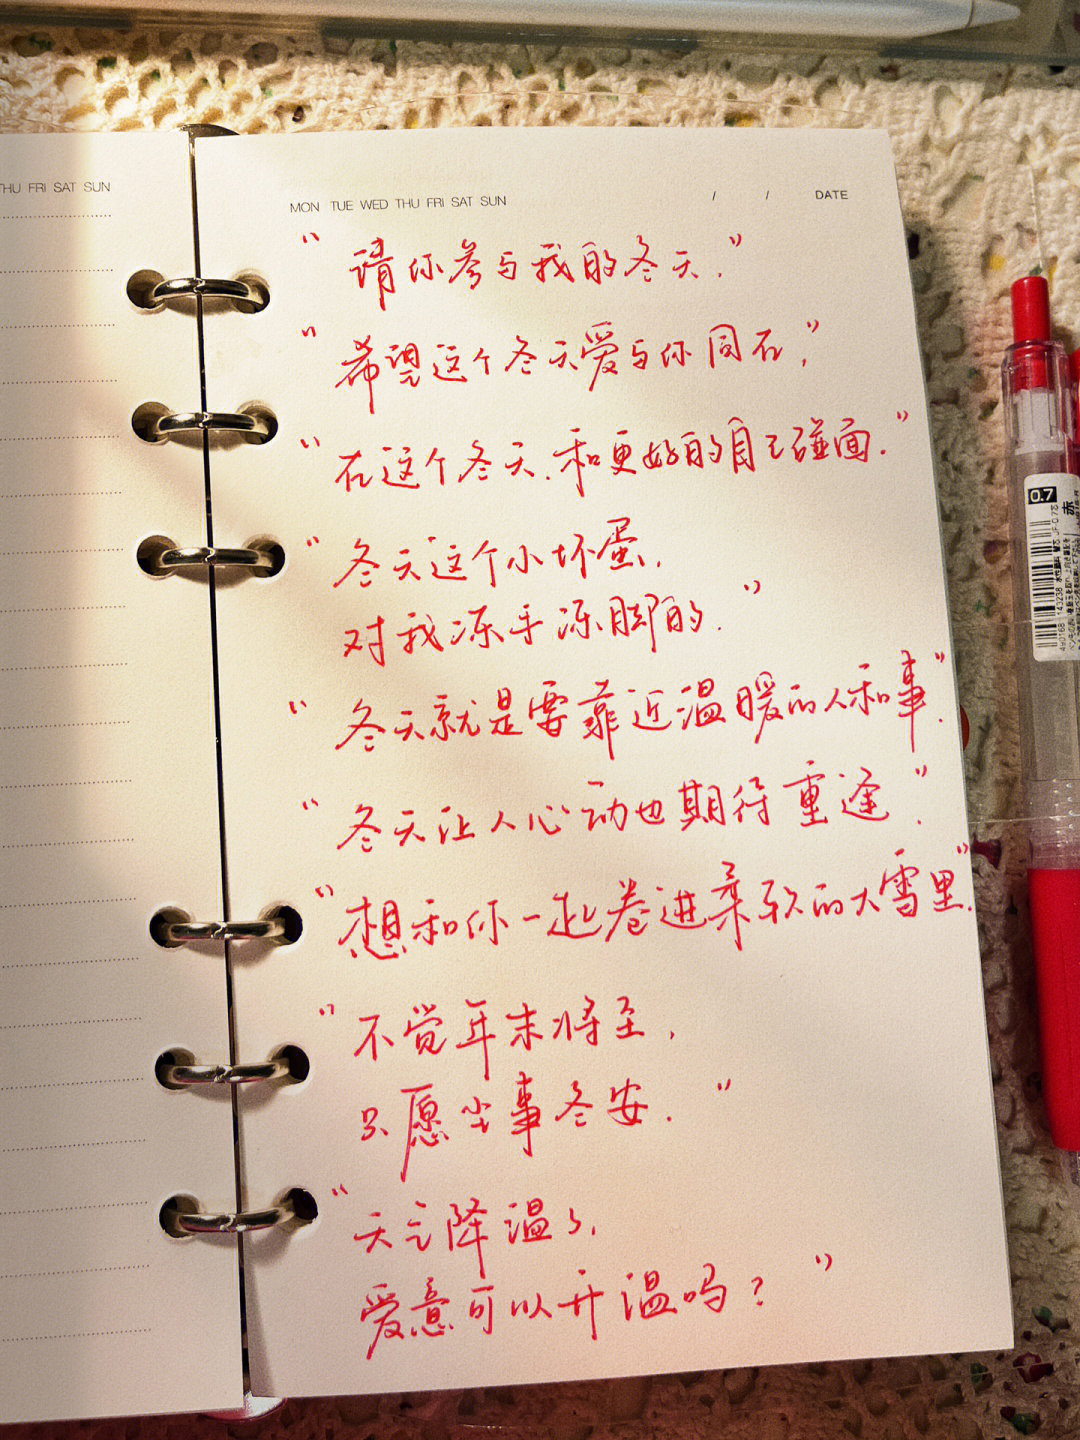 THU FRI SAT SUN
MON TUE WED THU FRI SAT SUN / / DATE
“请你参与我的冬天.”
“希望这个冬天爱与你同在,”
“在这个冬天.和更好的自己碰面.”
“冬天这个小坏蛋,
对我冻手冻脚的.”
“冬天就是要靠近温暖的人和事.”
“冬天让人心动也期待重逢.”
“想和你一起卷进柔软的大雪里.”
“不觉年末将至,
只愿尘事冬安.”
“天气降温了,
爱意可以升温吗?”
0.7
赤